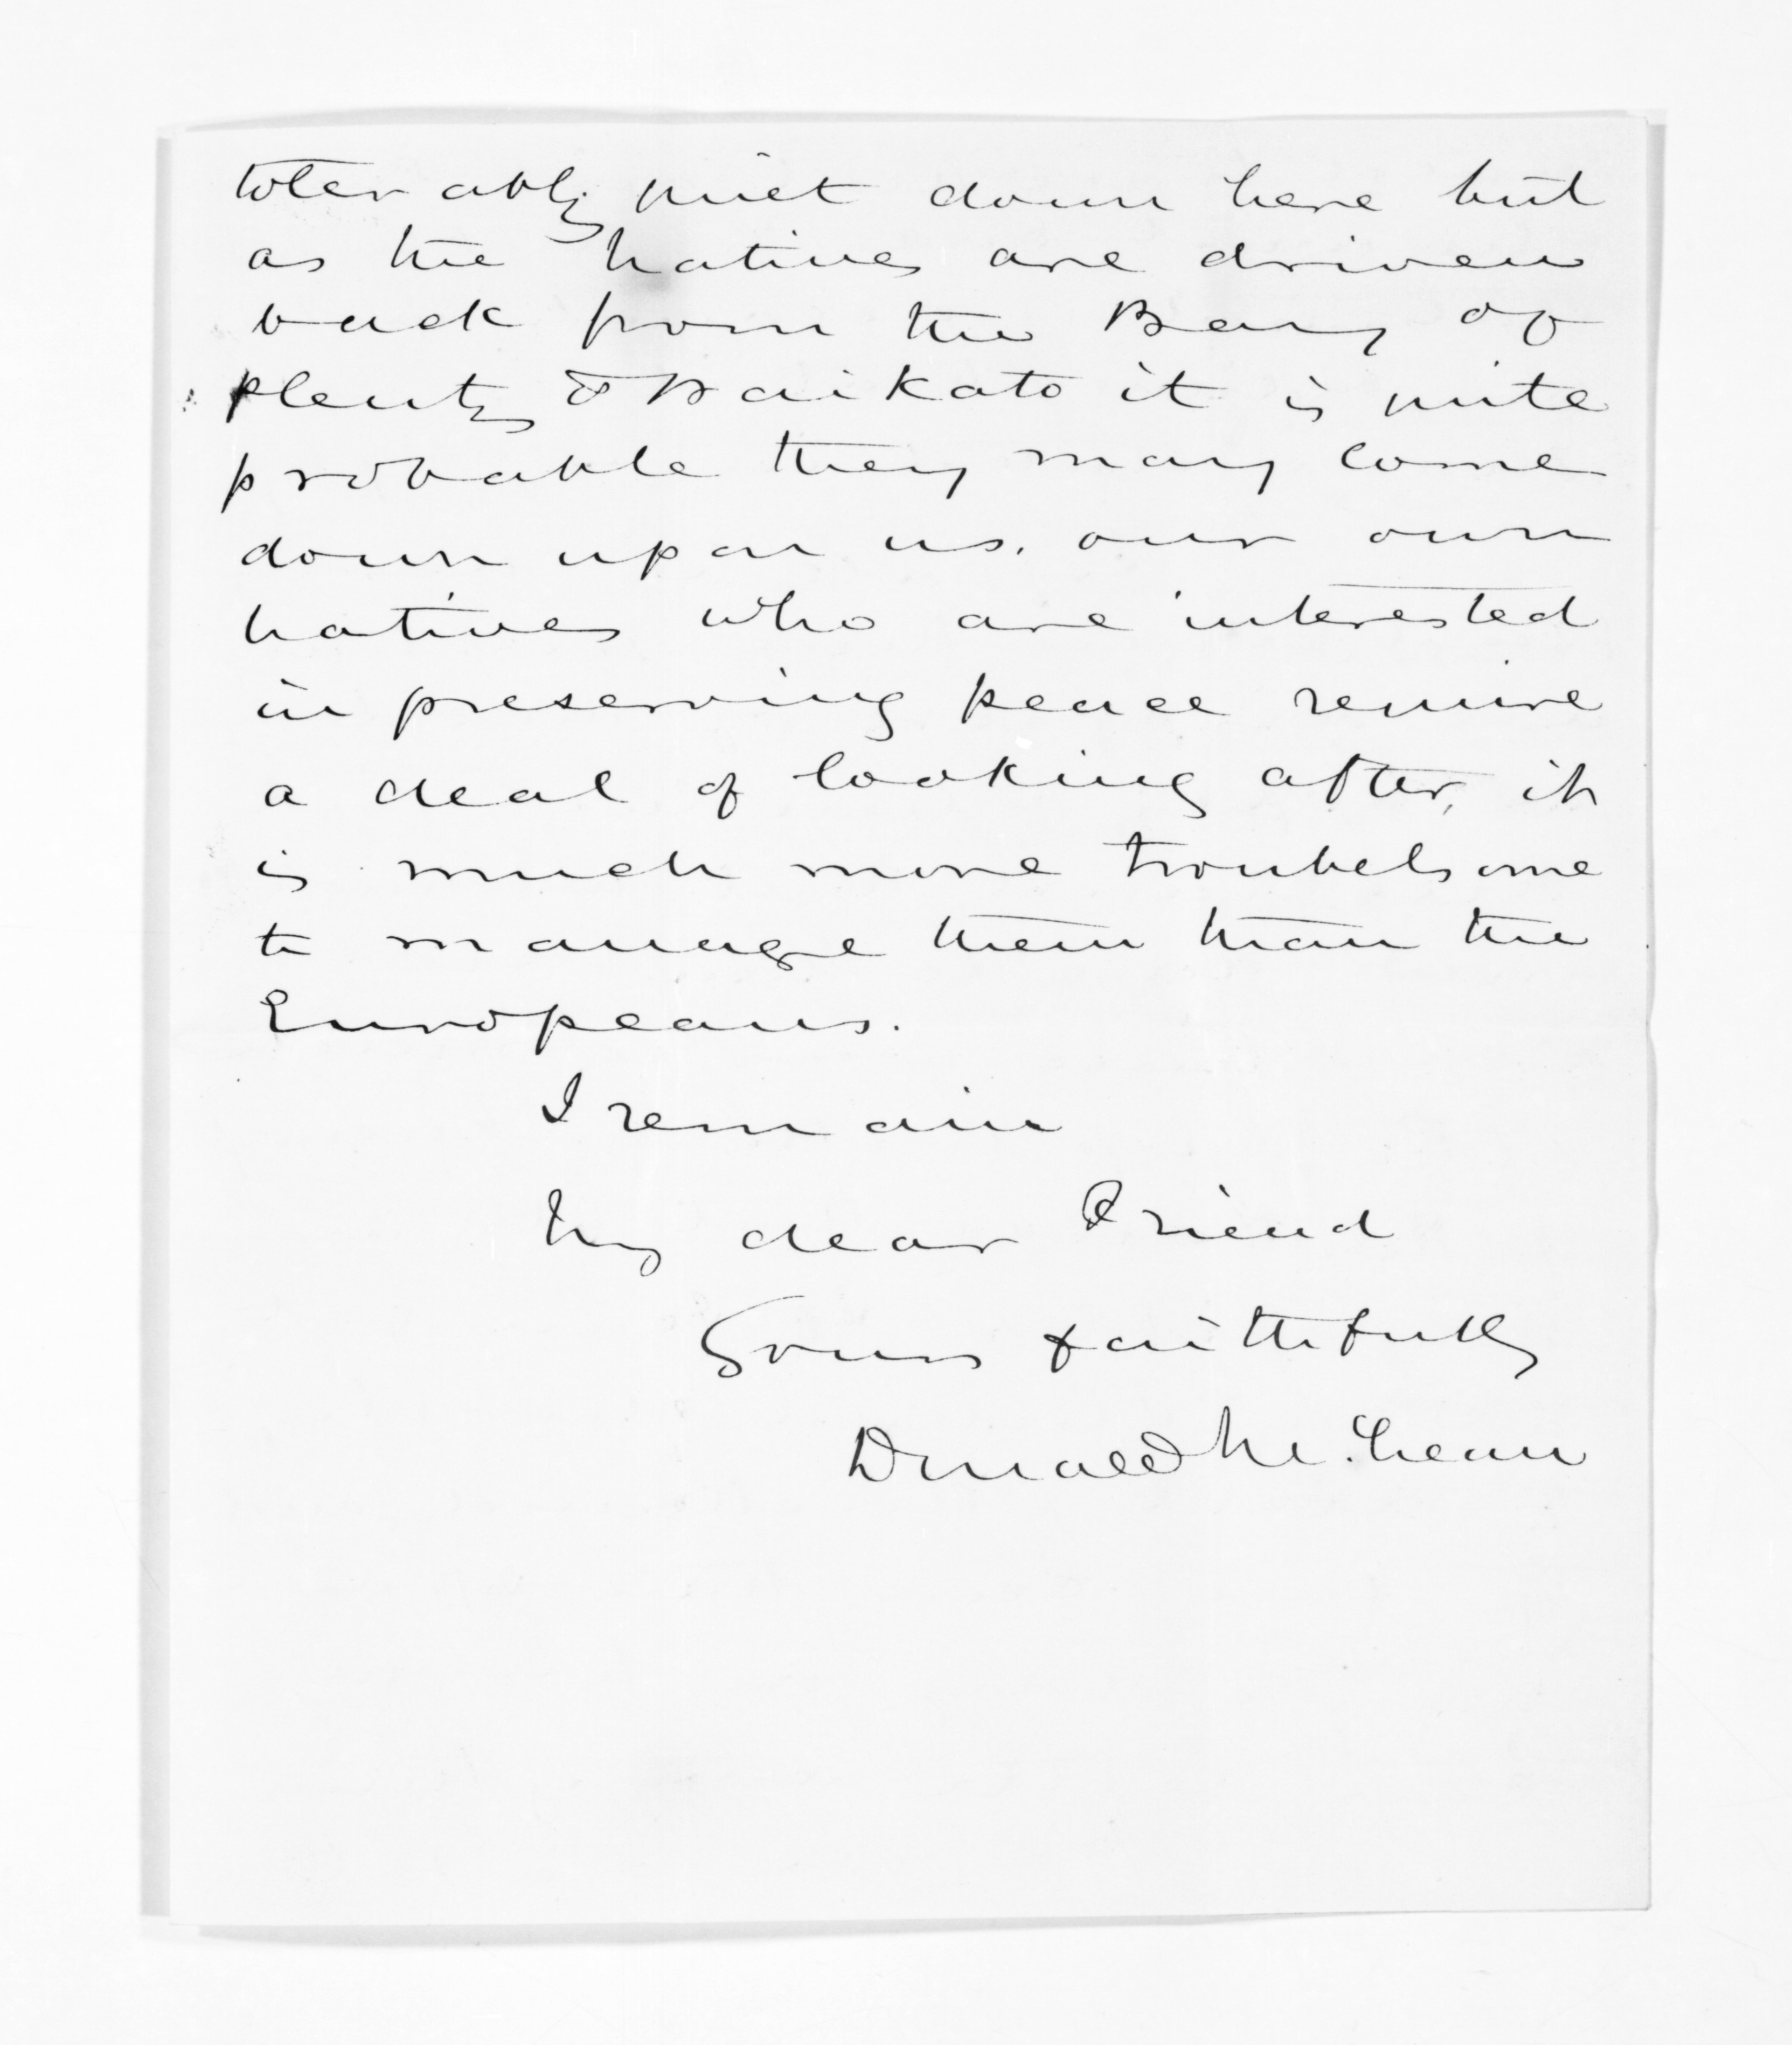 tolerably quiet down here but
as the natives are driven
back from the Bay of
plenty & Waikato it is quite
probable they may come
down upon us. our own
natives who are interested
in preserving peace require
a deal of looking after, it
is much more troubelsome
to manage them than the
Europeans.
I remain
My dear Friend
Yours faithfully
Donald McLean